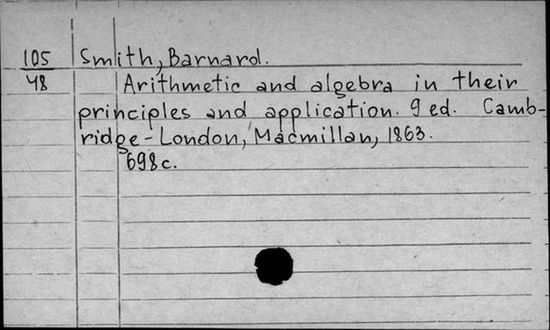 105 Smith, Barnard.
48 Arithmetic and algebra in their
principles and application. 9 ed. Camb-
ridge - London, Macmillan, 1863.
698 c.